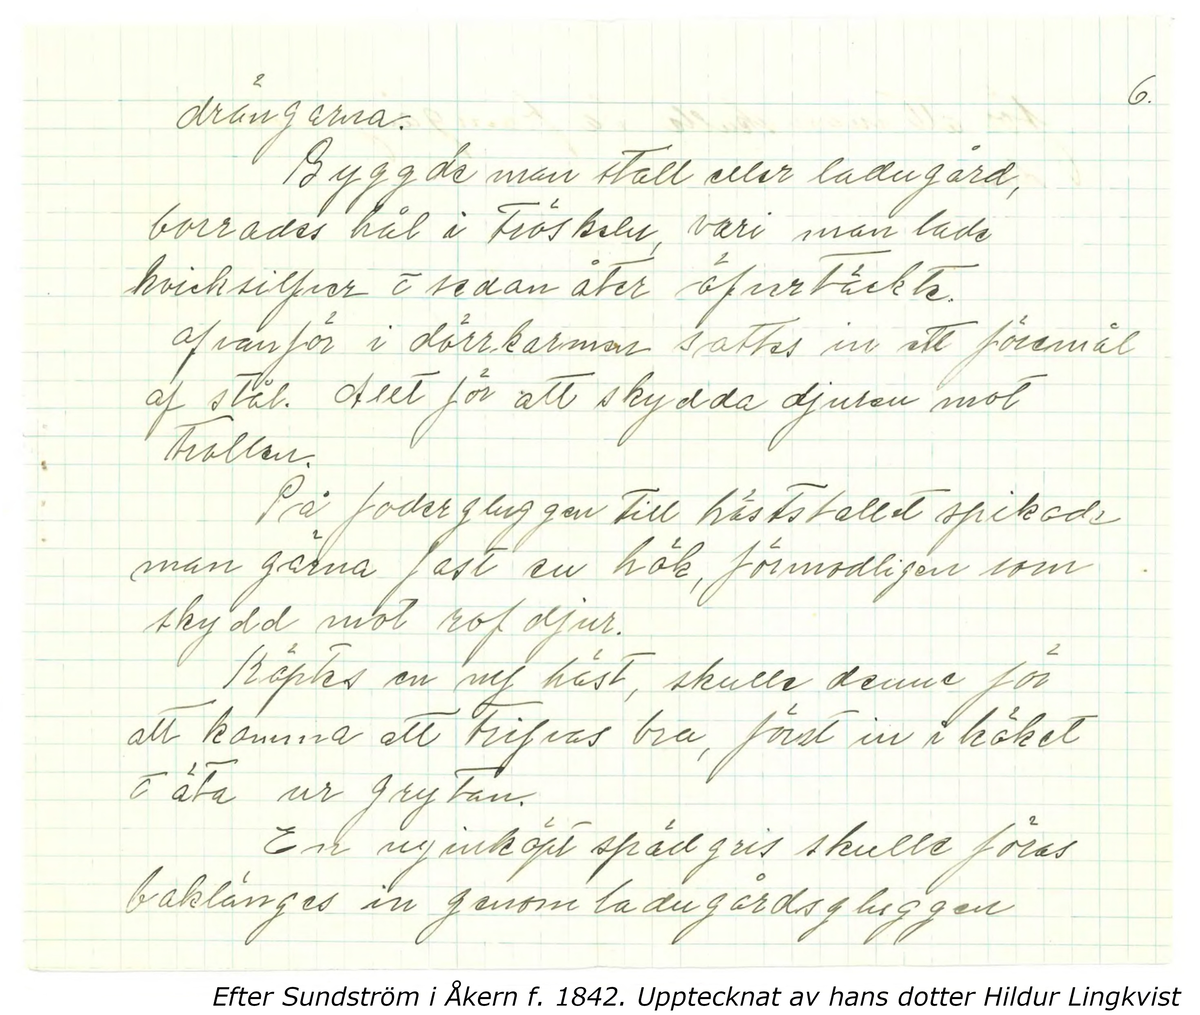 6.
drängarna.
Byggde man stall eller ladugård,
borrades hål i tröskeln, vari man lade
kvicksilfver o sedan åter öfvertäckte.
Ofvanför i dörrkarmen sattes in ett föremål
af stål. Allt för att skydda djuren mot
trollen.
På fodergluggen till häststallet spikade
man gärna fast en hök, förmodligen som
skydd mot rofdjur.
Köptes en ny häst, skulle denne för
att komma att trifvas bra, först in i köket
o äta ur grytan.
En nyinköpt spädgris skulle föras
baklänges in genom ladugårdsgluggen
Efter Sundström i Åkern f. 1842. Upptecknat av hans dotter Hildur Lingkvist